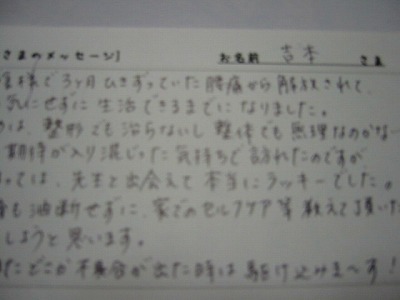 さまのメッセージ】 お名前 吉本 さま
様で3ヶ月ひきずっていた腰痛から解放されて、
気にせずに生活できるまでになりました。
は、整形でも治らないし整体でも無理なのかなー
期待が入り混じった気持ちで訪れたのですが
っては、先生と出会えて本当にラッキーでした。
も油断せずに、家でのセルフケア等教えて頂いた
しようと思います。
たどこか不具合が出た時は駆け込みま〜す!